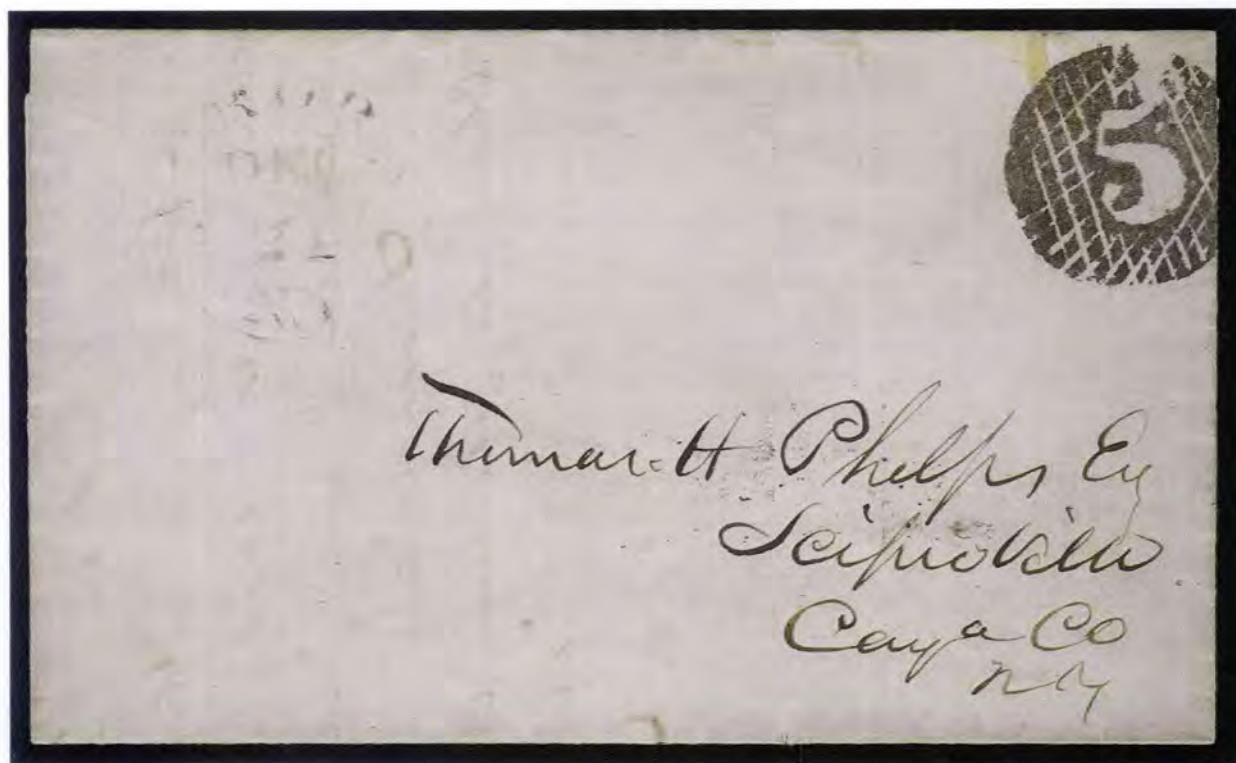 5
Thomas H Phelps Esq
Scipioville
Cayᵃ Co
NY